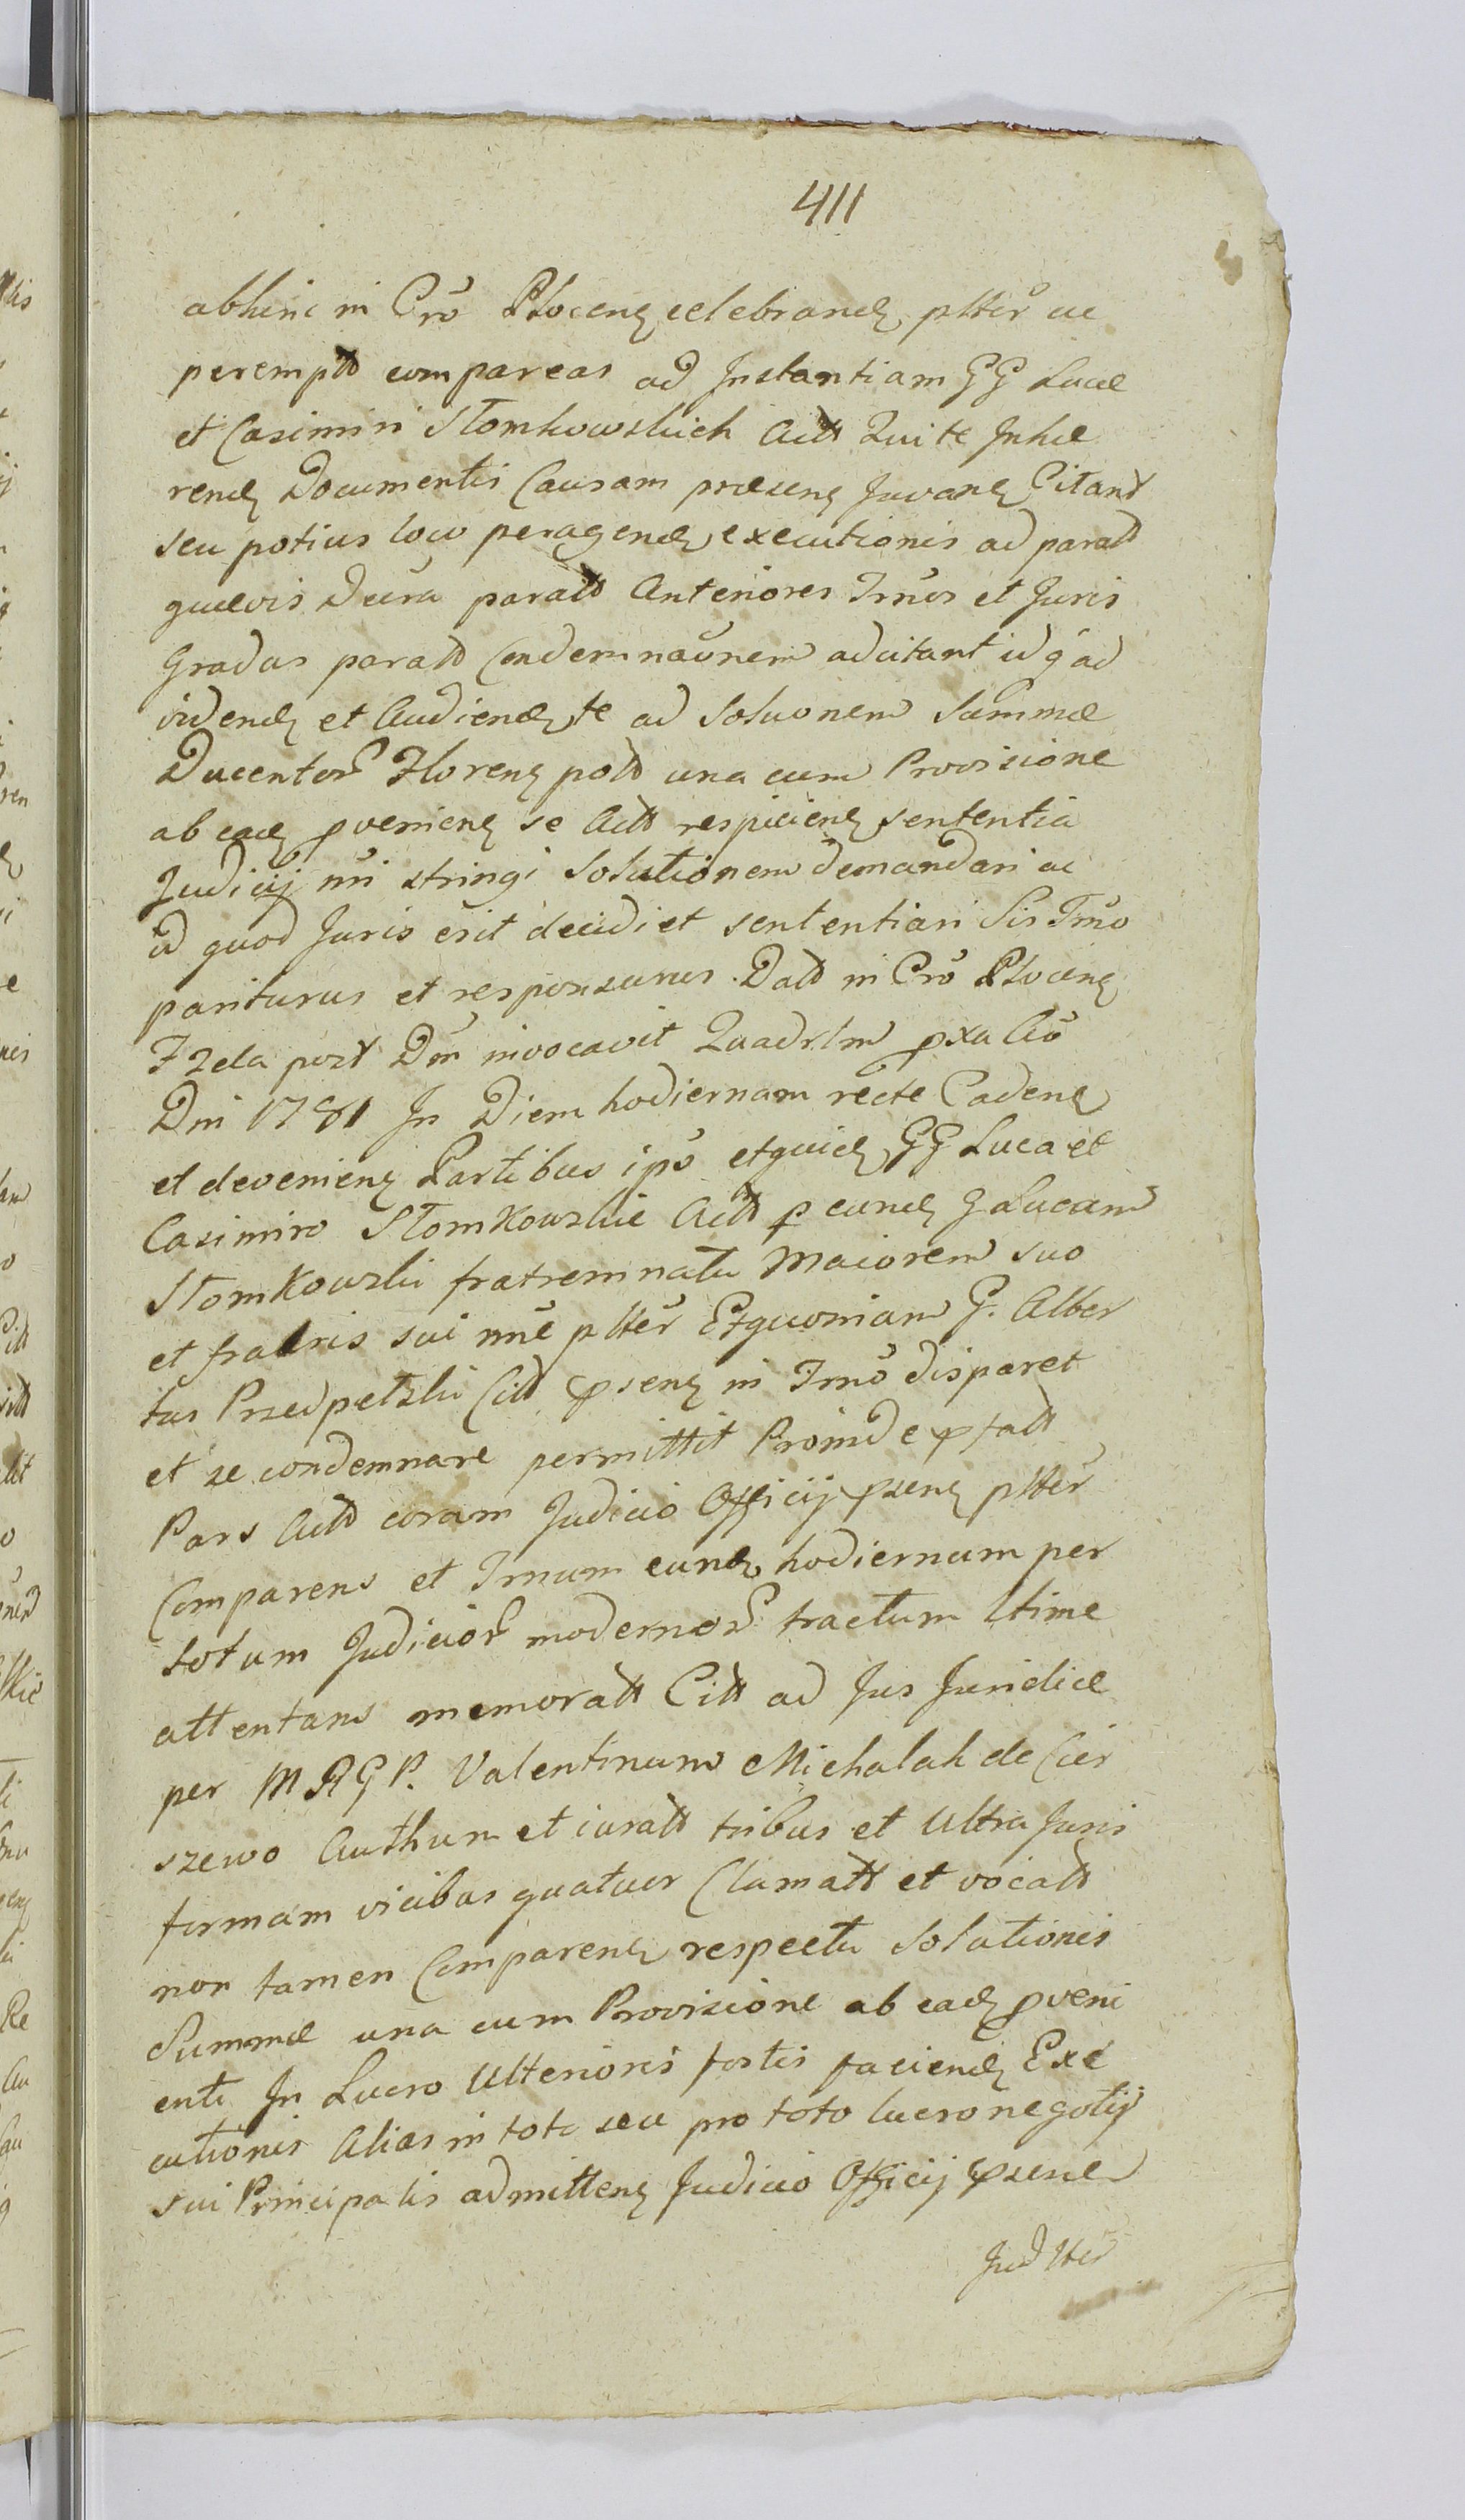 411
abhinc in Cro Plocen celebrand pltter ac
peremptt compareas ad Instantiam GG Lucæ
et Casimiri Słomkowskich Actt Qui te Inhæ
rend Documentis Causam præsen Juvan Citant
seu potius loco peragend executionis ad paratt
quævis Decra paratt Anteriores Tmos et Juris
Gradus paratt Condemnaonem adcitant id q ad
vidend et Audiend te ad Soluonem Summæ
Ducentor Floren pott una cum Provisione
ab ead pvenien se Actt respicien sententia
Judicij nri stringi Solutionem demandari ac
id quod Juris erit decidi et sententiari Sis Tmo
pariturus et responsurus. Datt in Cro Plocen
Fzela post Dm invocavit Quadrlm pxa Ao
Dni 1781 In Diem hodiernam recte Caden
et devenien Partibus ipo et quid GG Luca et
Casimiro Słomkowskie Actt p eund G Lucam
Słomkowski fratrem natu Maiorem suo
et fratris sui nne pltter Et quoniam G. Alber
tus Przedpełski Citt psens in Tmo disparet
et se condemnare permittit Proinde pfatt
Pars Actt coram Judicio Officij psen pltter
Comparens et Tmum eund hodiernum per
totum Judicior modernor tractum ltime
attentans memoratt Citt ad Jus Juridice
per MRGP. Valentinum Michalak de Cier
szewo Authum et iuratt tribus et Ultra Juris
formam vicibus quatuor Clamatt et vocatt
non tamen Comparen respectu Solutionis
Summæ una cum Provisione ab ead pveni
enti In Lucro Ulterioris fortis faciend Exe
cutionis Alias in toto seu pro toto lucro negotij
sui Principalis admitten Judicio Officij psens
Jud ltter